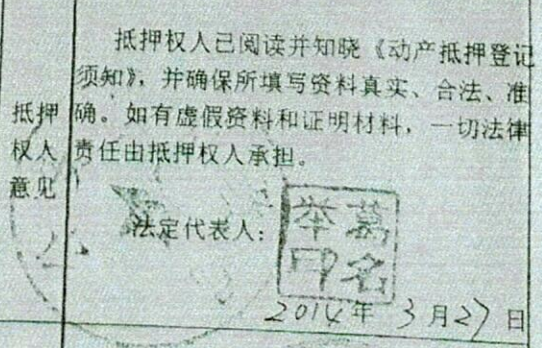 抵押权人已阅读并知晓《动产抵押登记
须知》，并确保所填写资料真实、合法、准
确。如有虚假资料和证明材料，一切法律
责任由抵押权人承担。
抵押
权人
意见
法定代表人：
葛名
举印
2014年 3月27日